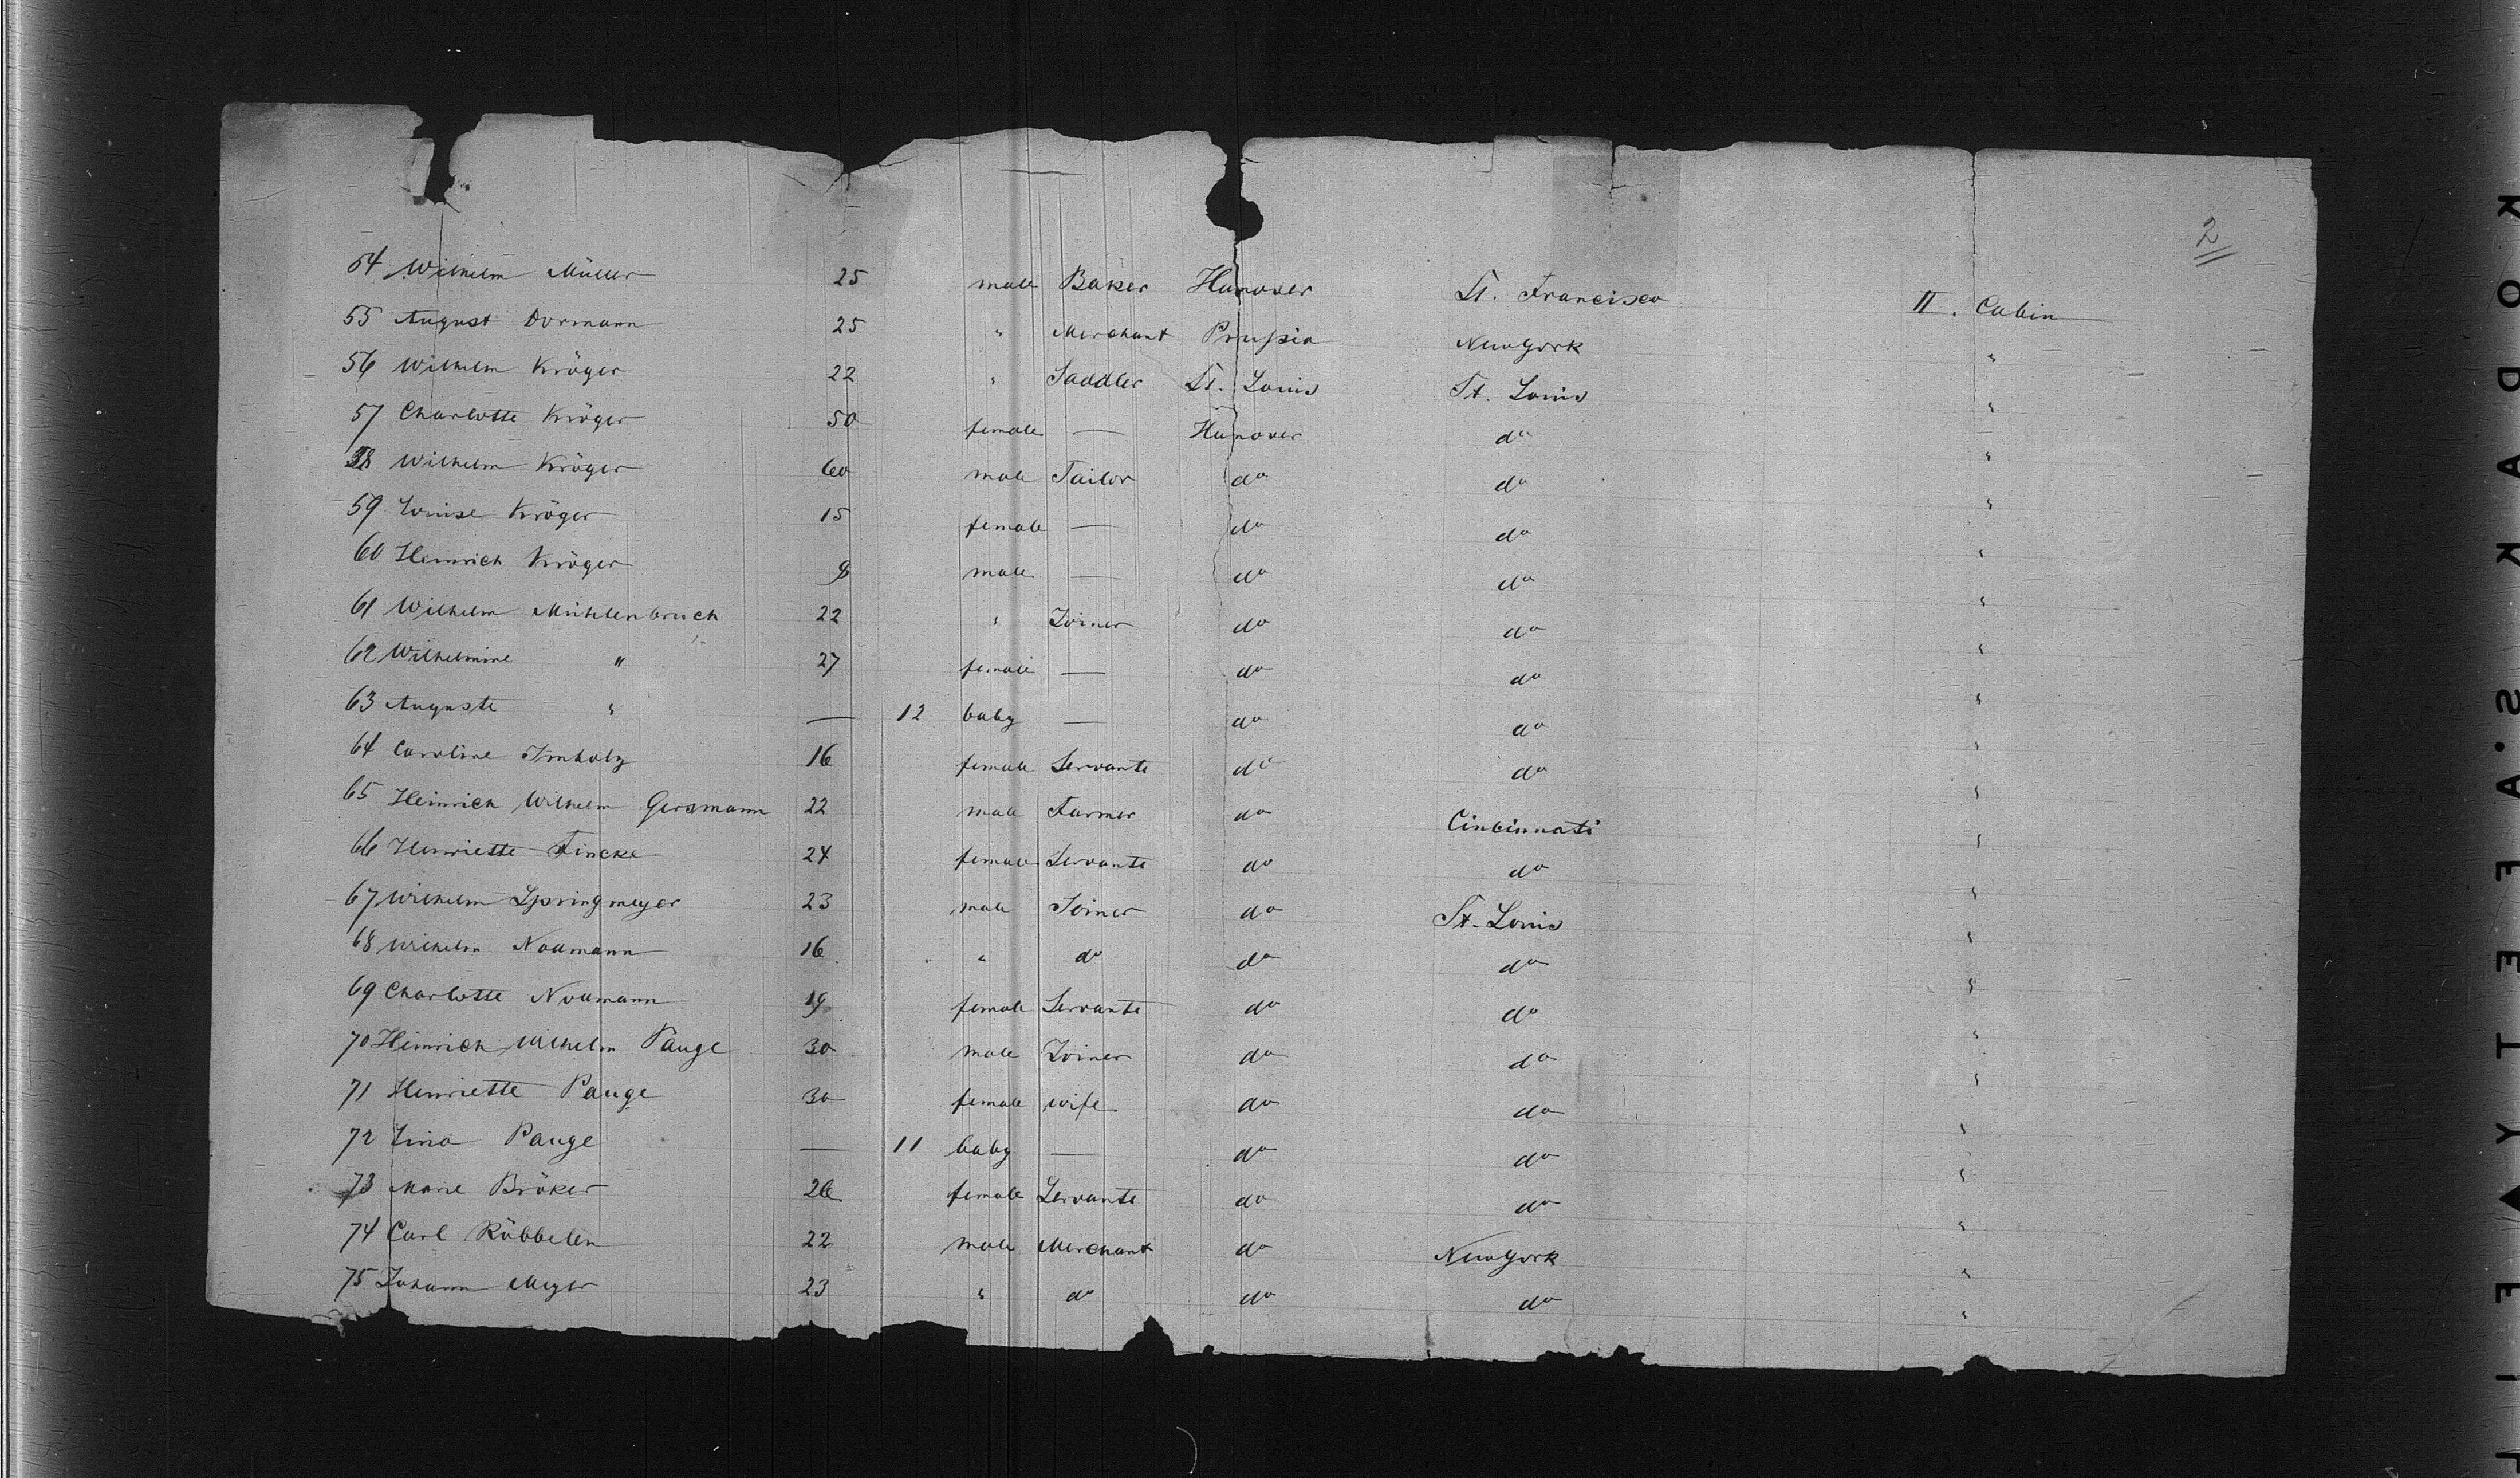 2
54 Wilhelm Müller 25 male Baker Hanover St. Francisco II. Cabin
55 August Dormann 25 " Merchant Prussia NewYork "
56 Wilhelm Kröger 22 " Saddler St. Louis St. Louis "
57 Charlotte Kröger 50 female — Hanover do "
58 Wilhelm Kröger 60 male Tailor do do "
59 Louise Kröger 15 female — do do "
60 Heinrich Kröger 8 male — do do "
61 Wilhelm Mühlenbruch 22 " Joiner do do "
62 Wilhelmine " 27 female — do do "
63 Auguste " — 12 baby — do do "
64 Caroline Imholz 16 female Servante do do "
65 Heinrich Wilhelm Gersmann 22 male Farmer do Cincinnati "
66 Henriette Fincke 24 female Servante do do "
67 Wilhelm Springmeyer 23 male Joiner do St. Louis "
68 Wilhelm Nollmann 16 " do do do "
69 Charlotte Nollmann 19 female Servante do do "
70 Heinrich Wilhelm Pauge 30 male Joiner do do "
71 Henriette Pauge 30 female wife do do "
72 Lina Pauge — 11 baby — do do "
73 Marie Bröker 26 female Servante do do "
74 Carl Röbbelen 22 male Merchant do NewYork "
75 Johann Meyer 23 " do do do "
KODAK S.A.F.E.T.Y